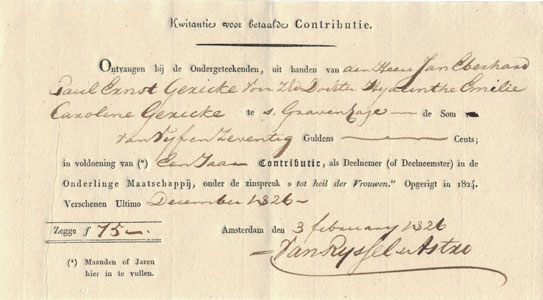 Kwitantie voor betaalde Contributie.
Ontvangen bij de Ondergeteekenden, uit handen van den Heer Jan Eberhard
Paul Ernst Gericke voor Zijn Dochter Hyacinthe Emilie
Caroline Gericke te s. Gravenhage — de Som
van Vijf en Zeventig Guldens — Cents;
in voldoening van (*) Een Jaar Contributie, als Deelnemer (of Deelneemster) in de
Onderlinge Maatschappij, onder de zinspreuk » tot heil der Vrouwen." Opgerigt in 1824.
Verschenen Ultimo December 1826 —
Zegge f 75 —.
Amsterdam den 3 february 1826
(*) Maanden of Jaren
hier in te vullen.